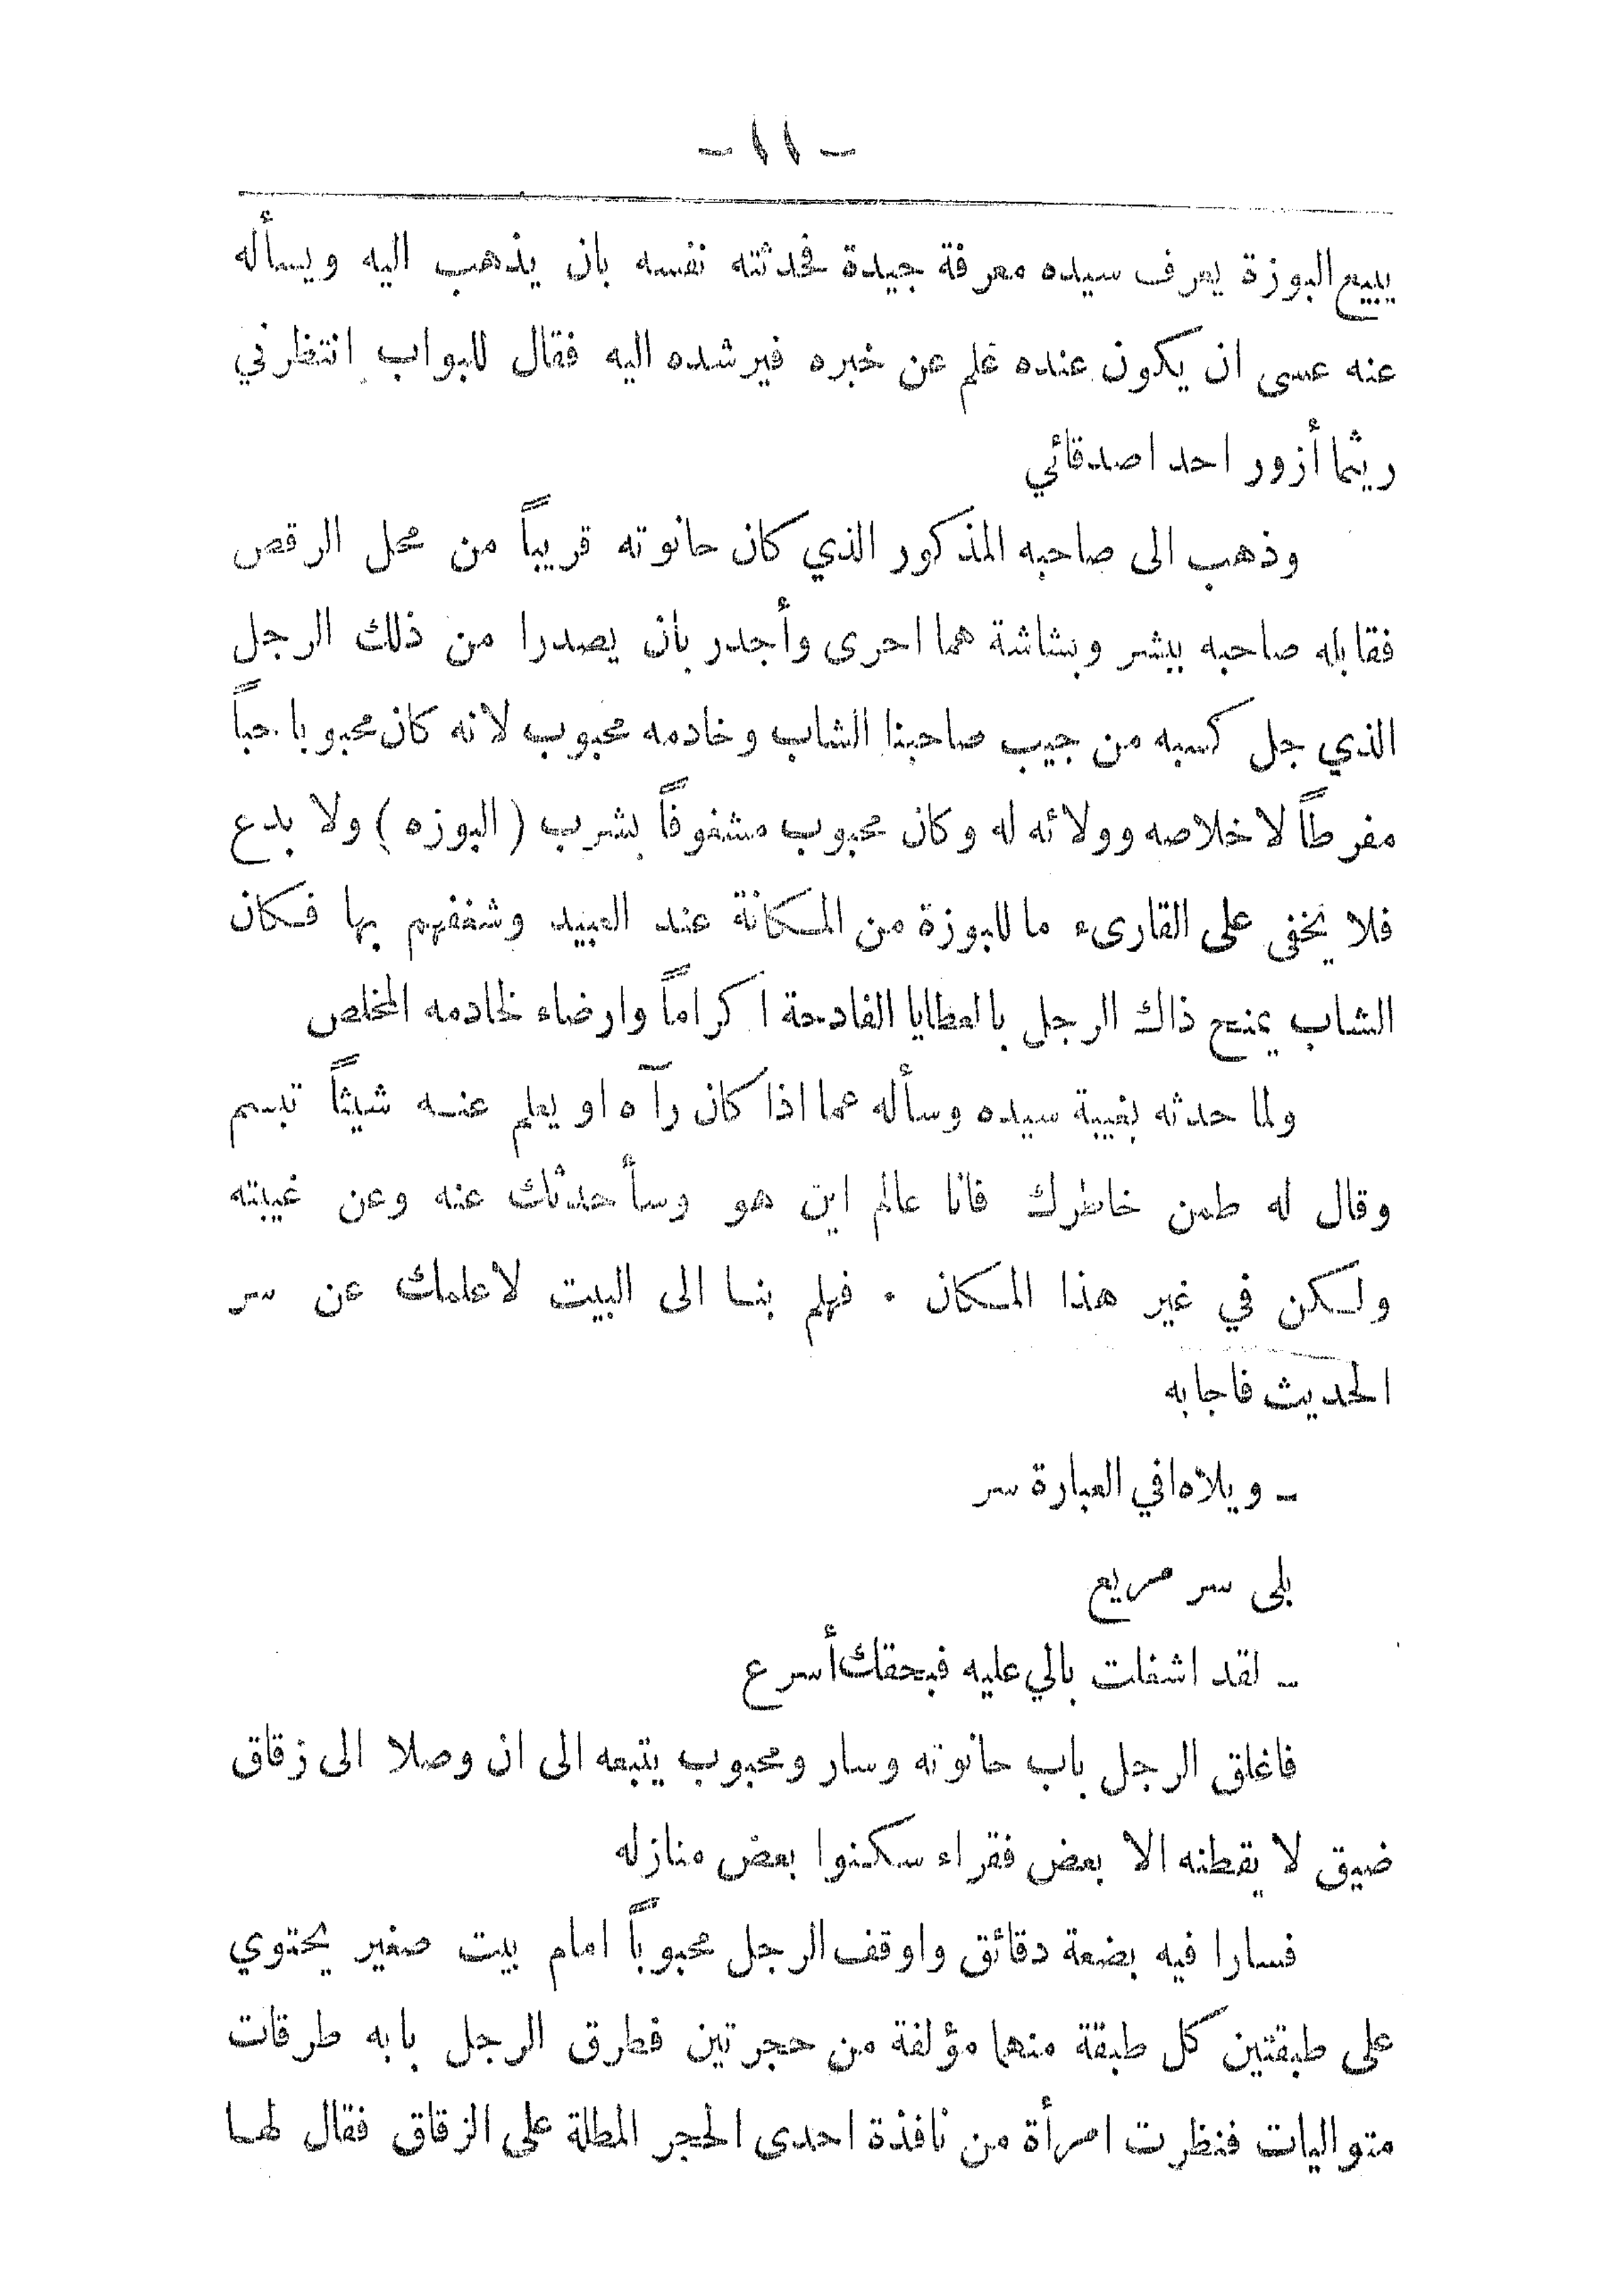 - ١١ -
يبيع البوزة يعرف سيده معرفة جيدة فحدثته نفسه بان يذهب اليه ويسأله
عنه عسى ان يكون عنده علم عن خبره فيرشده اليه فقال للبواب انتظرني
ريثما أزور احد اصدقائي
وذهب الى صاحبه المذكور الذي كان حانوته قريباً من محل الرقص
فقابله صاحبه ببشر وبشاشة هما احرى وأجدر بأن يصدرا من ذلك الرجل
الذي جل كسبه من جيب صاحبنا الشاب وخادمه محبوب لانه كان محبوبا حباً
مفرطاً لاخلاصه وولائه له وكان محبوب مشغوفاً بشرب ( البوزه ) ولا بدع
فلا يخفى على القارىء ما للبوزة من المكانة عند العبيد وشغفهم بها فكان
الشاب يمنح ذاك الرجل بالعطايا الفادحة اكراماً وارضاء لخادمه المخلص
ولما حدثه بغيبة سيده وسأله عما اذا كان رآه او يعلم عنه شيئاً تبسم
وقال له طمن خاطرك فانا عالم اين هو وسأحدثك عنه وعن غيبته
ولكن في غير هذا المكان . فهلم بنا الى البيت لاعلمك عن سر
الحديث فاجابه
- ويلاه افي العبارة سر
بلى سر مريع
- لقد اشغلت بالي عليه فبحقك أسرع
فاغلق الرجل باب حانوته وسار ومحبوب يتبعه الى ان وصلا الى زقاق
ضيق لا يقطنه الا بعض فقراء سكنوا بعض منازله
فسارا فيه بضعة دقائق واوقف الرجل محبوباً امام بيت صغير يحتوي
على طبقتين كل طبقة منهما مؤلفة من حجرتين فطرق الرجل بابه طرقات
متواليات فنظرت امرأة من نافذة احدى الحجر المطلة على الزقاق فقال لها